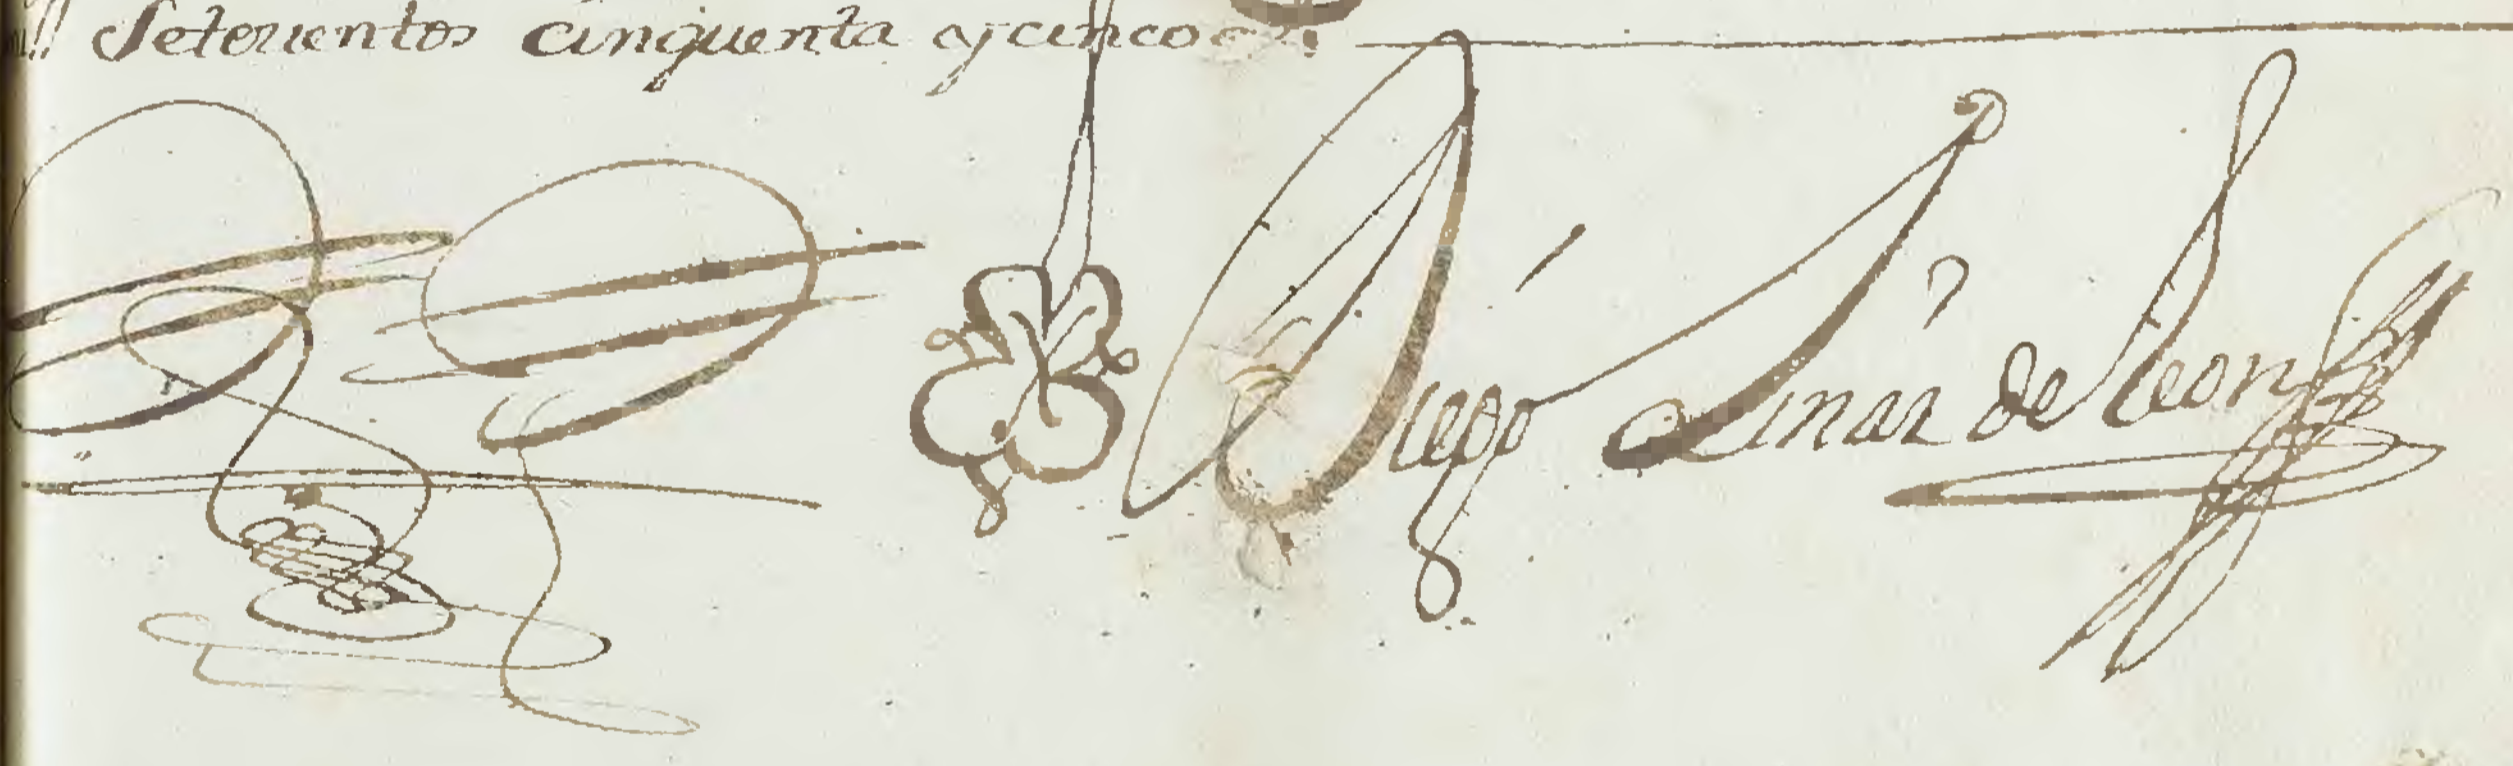 Setezientos Cinquenta y cinco
Diego Linar de Leon